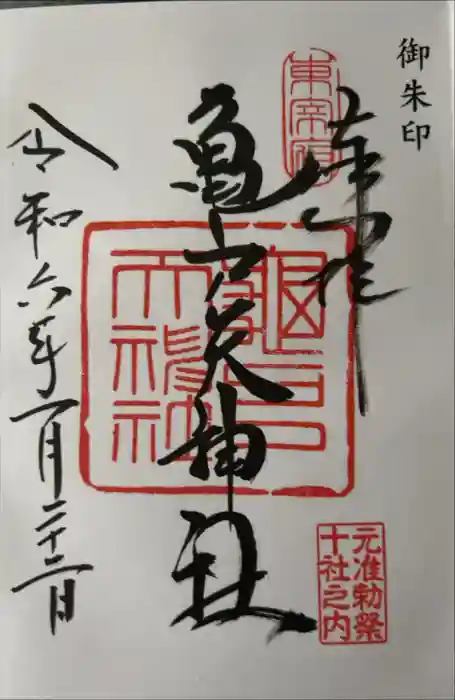 御朱印
奉拝
亀戸天神社
令和六年一月二十二日
東宰府
亀戸天神社
元准勅祭
十社之内